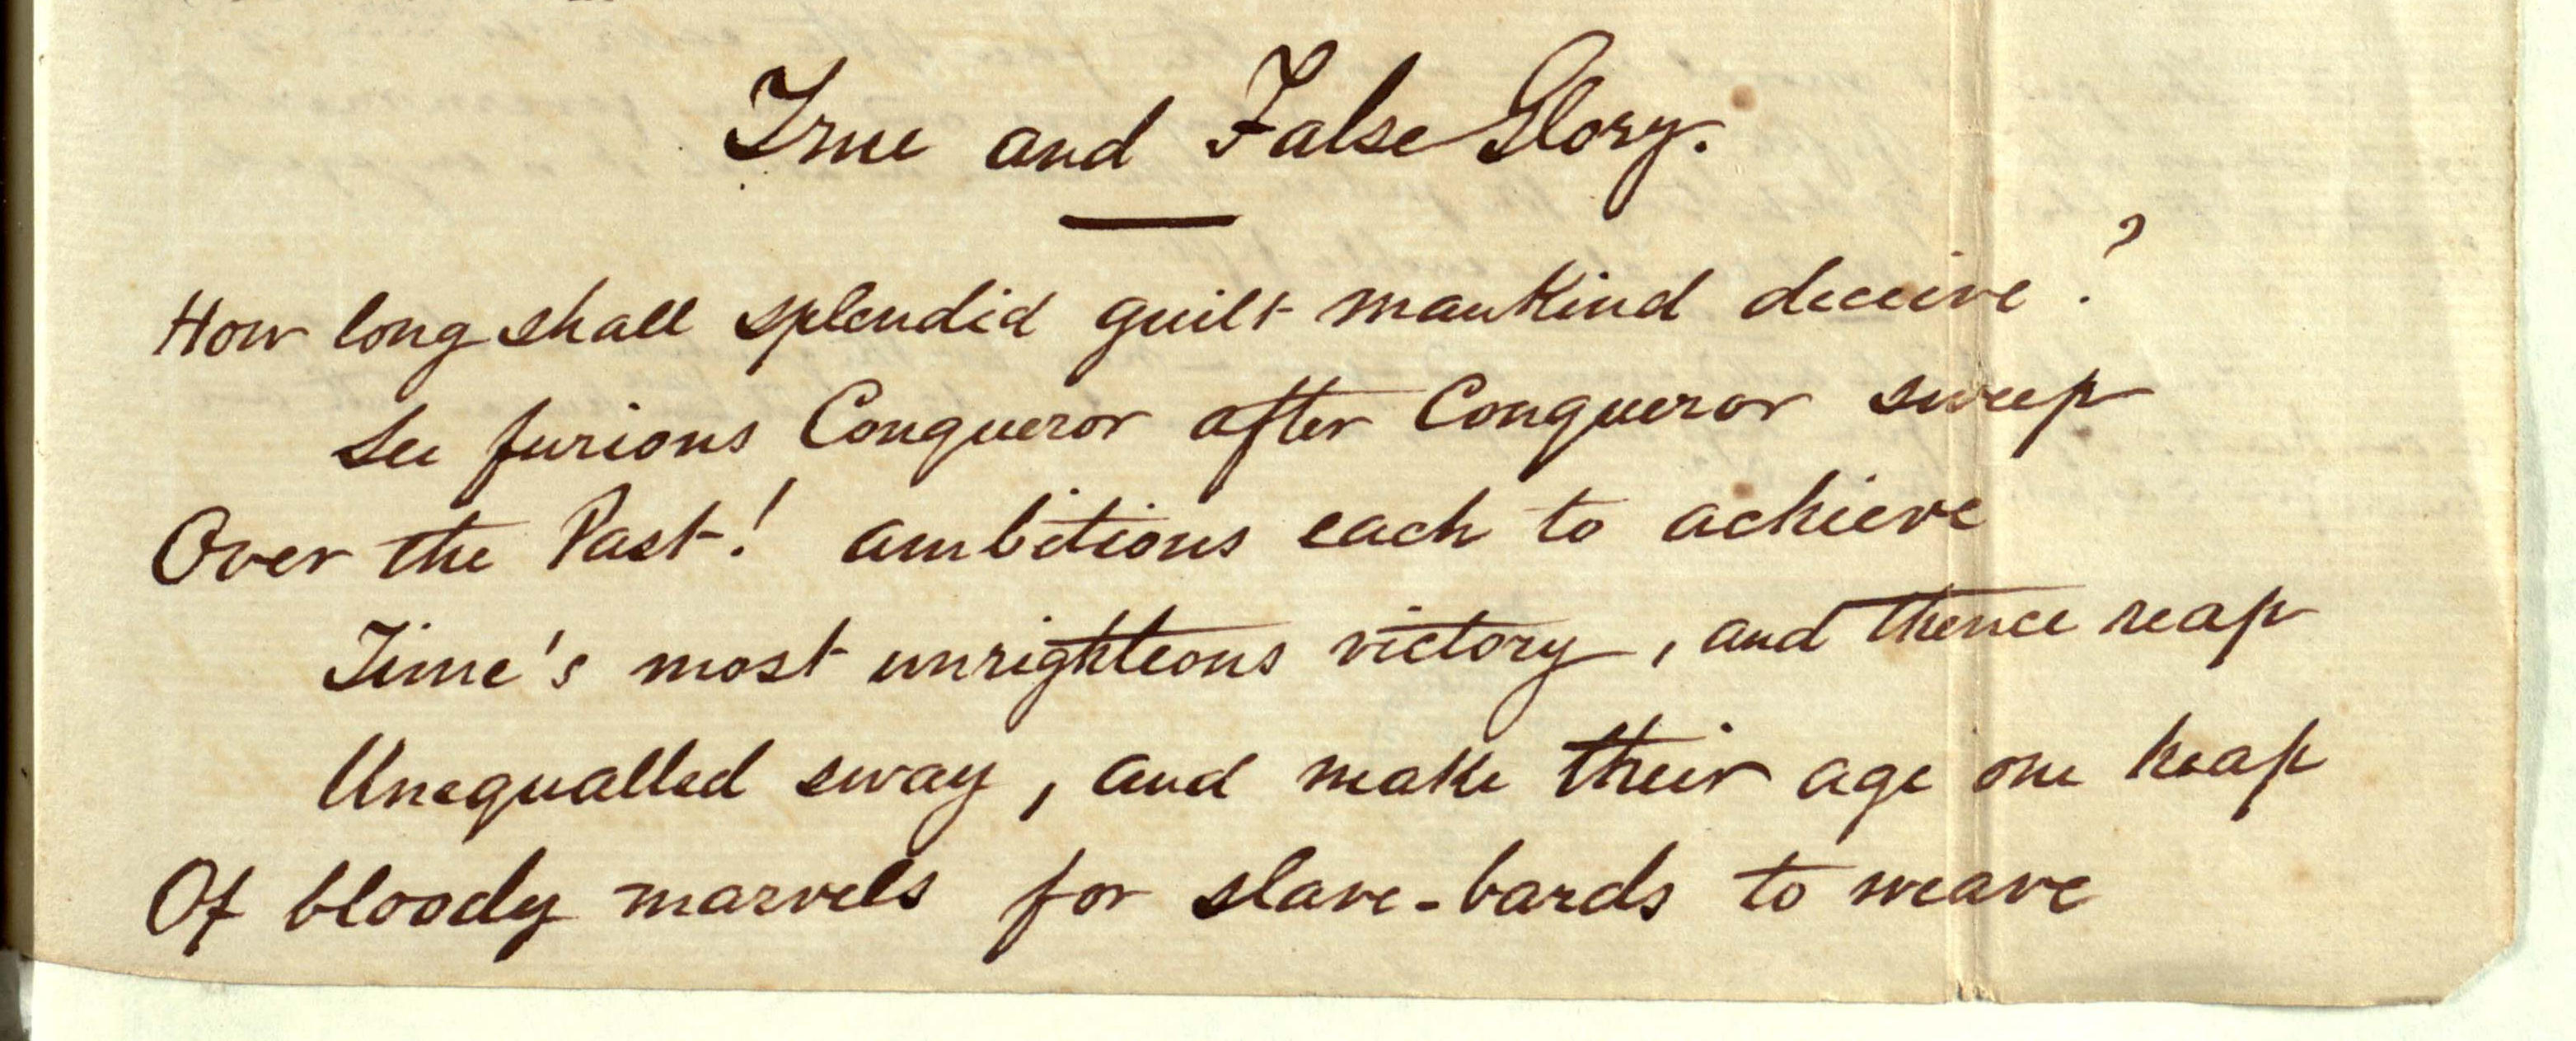 True and False Glory.
How long shall splendid guilt mankind deceive?
See furious Conqueror after Conqueror sweep
Over the Past! ambitious each to achieve
Time's most unrighteous victory, and thence reap
Unequalled sway, and make their age one heap
Of bloody marvels for slave-bards to weave